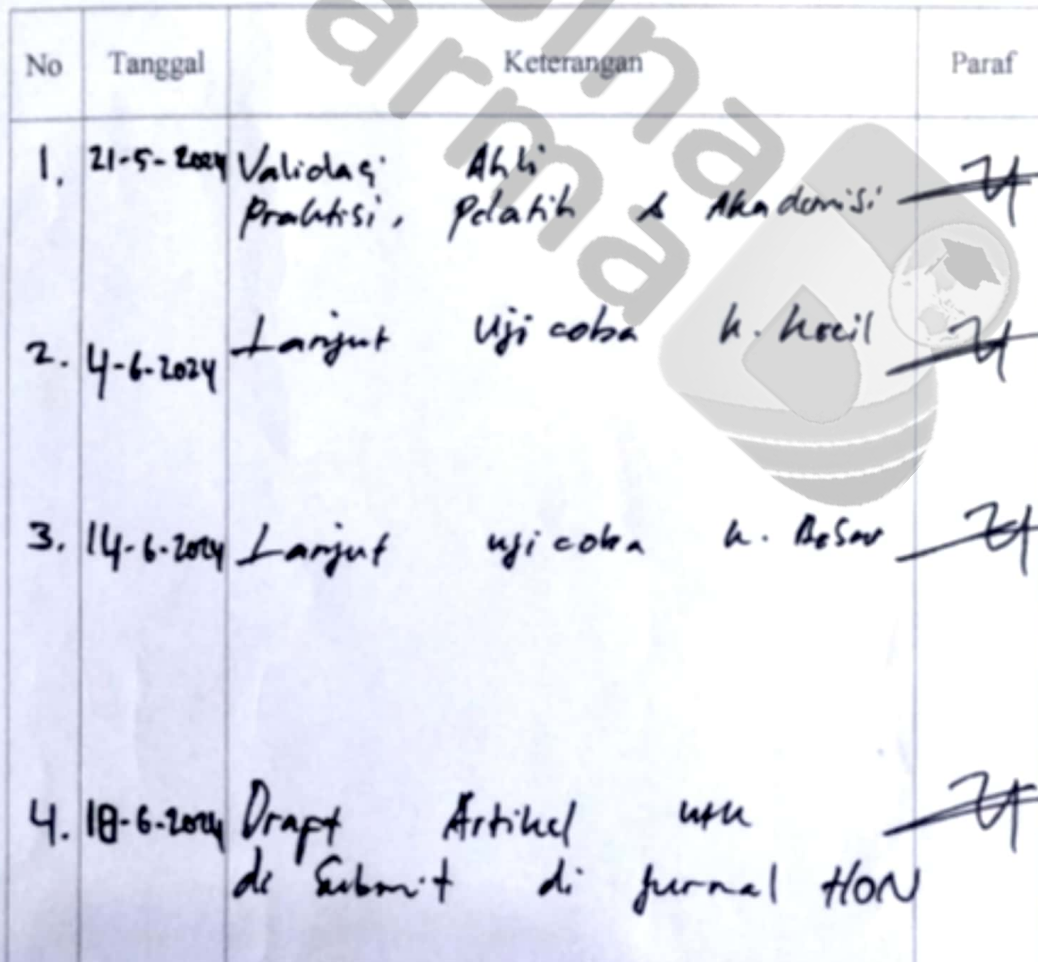 ina
arma
No Tanggal Keterangan Paraf
1. 21-5-2024 Validasi Ahli
Praktisi, Pelatih & Akademisi
2. 4-6-2024 Lanjut Uji coba k. kecil
3. 14-6-2024 Lanjut uji coba k. Besar
4. 18-6-2024 Draft Artikel utk
di Submit di Jurnal HON